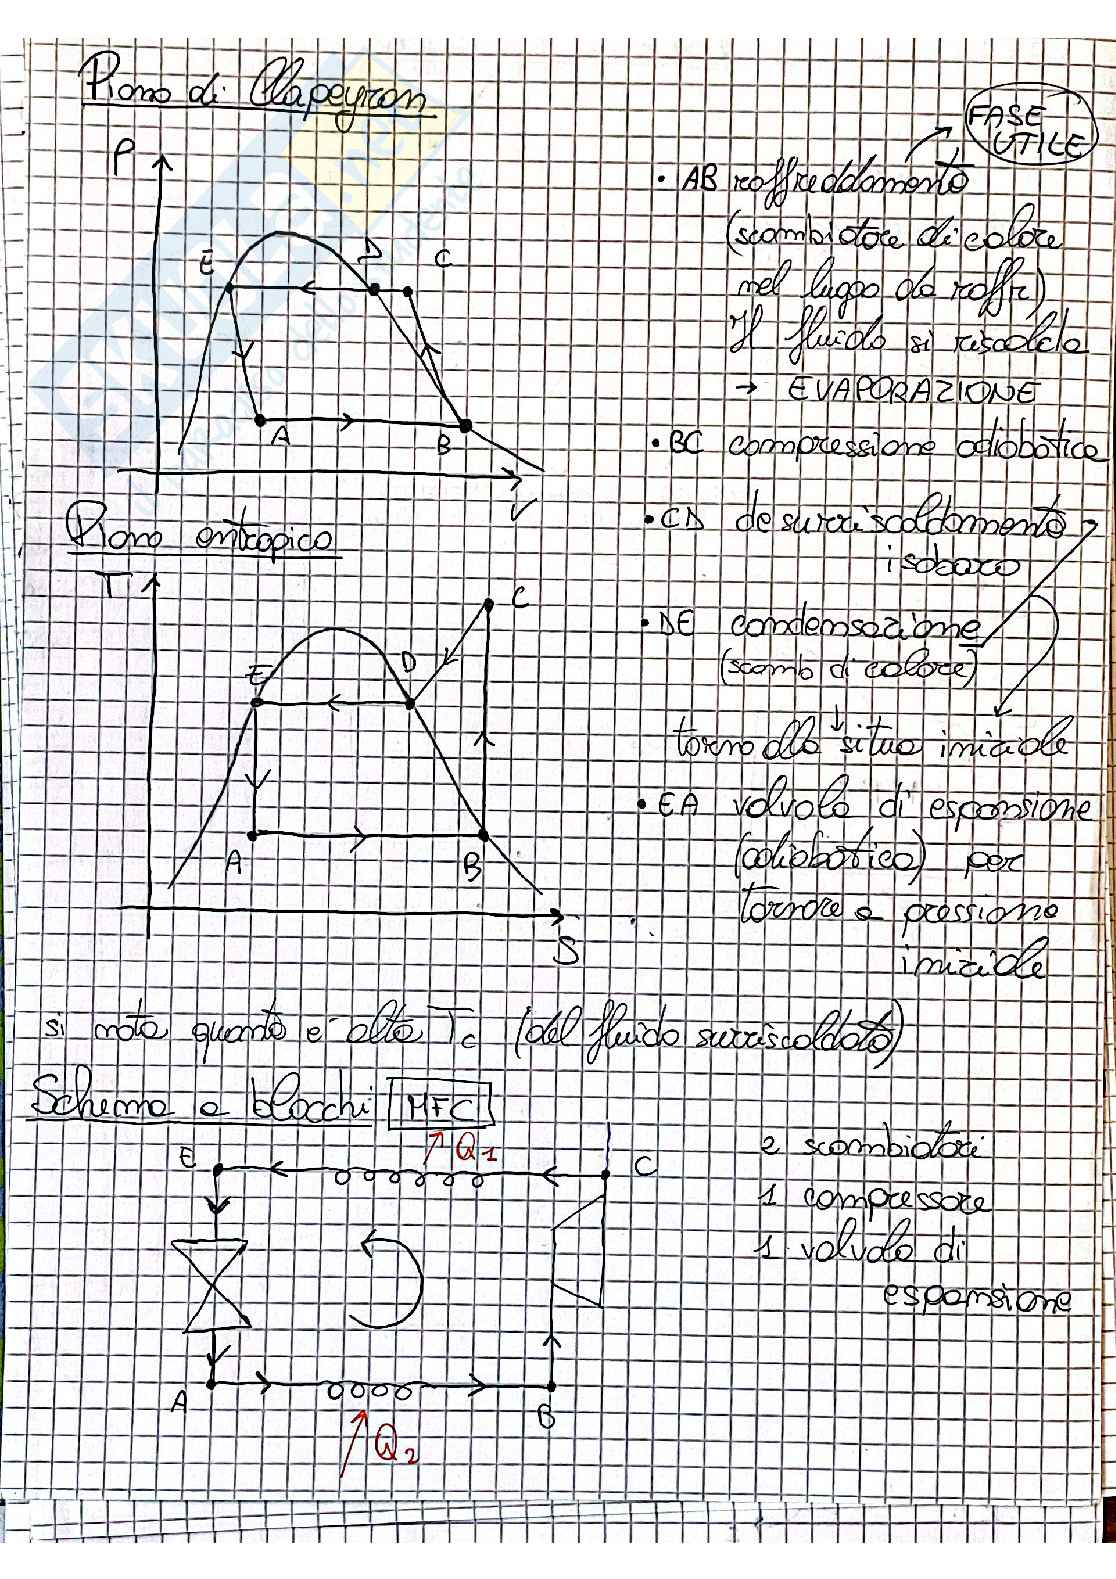 Piano di Clapeyron
FASE
UTILE
P
E
D
C
A
B
V
• AB raffreddamento
(scambiatore di calore
nel luogo da raffr)
Il fluido si riscalda
→ EVAPORAZIONE
• BC compressione adiabatica
• CD desurriscaldamento
isobaro
• DE condensazione
(scamb di calore)
torno alla situa iniziale
• EA valvola di espansione
(adiabatica) per
tornare a pressione
iniziale
Piano entropico
T
C
E
D
A
B
S
si nota quanto e' alta Tc (del fluido surriscaldato)
Schema a blocchi MFC
E
Q1
C
A
B
Q2
2 scambiatori
1 compressore
1 valvola di
espansione